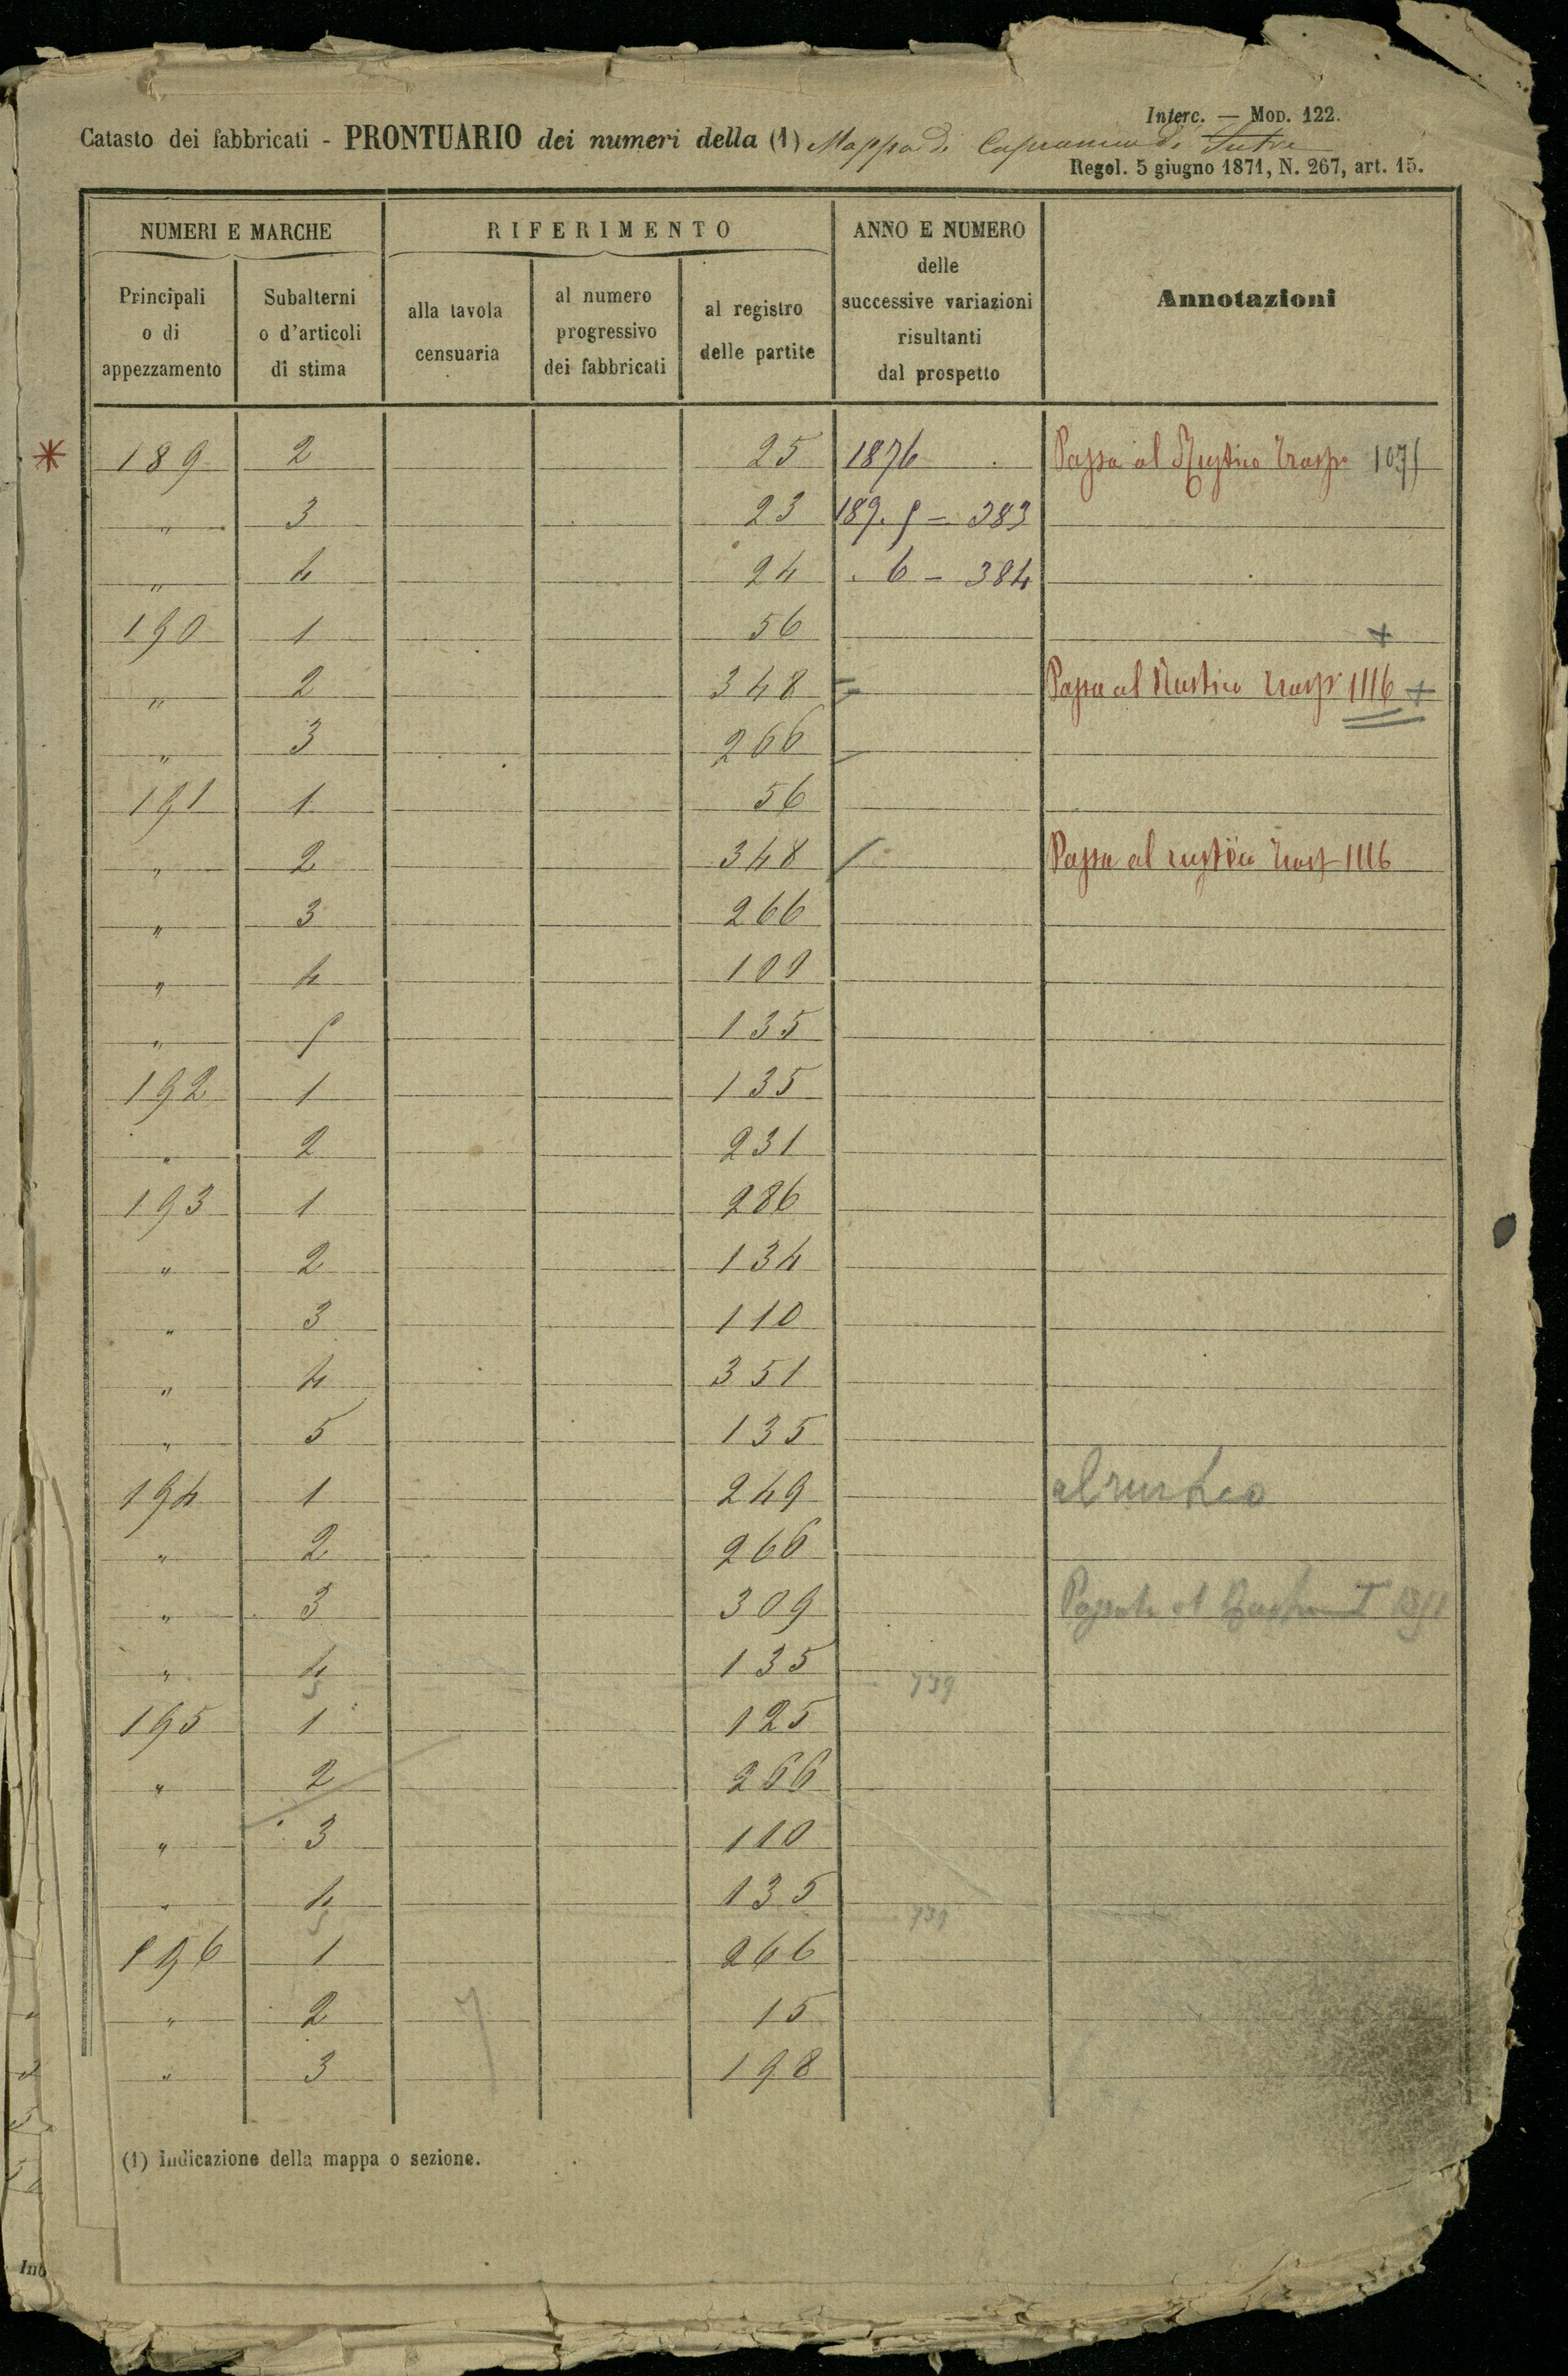 Interc. — Mod. 122.
Catasto dei fabbricati - PRONTUARIO dei numeri della (1) Mappa di Capranica di Sutri
Regol. 5 giugno 1871, N. 267, art. 15.
NUMERI E MARCHE RIFERIMENTO ANNO E NUMERO delle successive variazioni risultanti dal prospetto Annotazioni
Principali o di appezzamento Subalterni o d'articoli di stima alla tavola censuaria al numero progressivo dei fabbricati al registro delle partite
* 189 2 25 1876 Passa al Rustico Trasp.
" 3 23 189.5 = 383
" 4 24 . 6 - 384
190 1 56 +
" 2 348 = Passa al Rustico Trasp. 1116 +
" 3 266
191 1 56
" 2 348 / Passa al rustico Trasp 1116
" 3 266
" 4 100
" 5 135
192 1 135
" 2 231
193 1 286
" 2 134
" 3 110
" 4 351
" 5 135
194 1 249 al rustico
" 2 266
" 3 309
" 4 135
5 739
195 1 125
" 2 266
" 3 110
" 4 135
5 739
196 1 266
" 2 15
" 3 198
(1) Indicazione della mappa o sezione.
Int